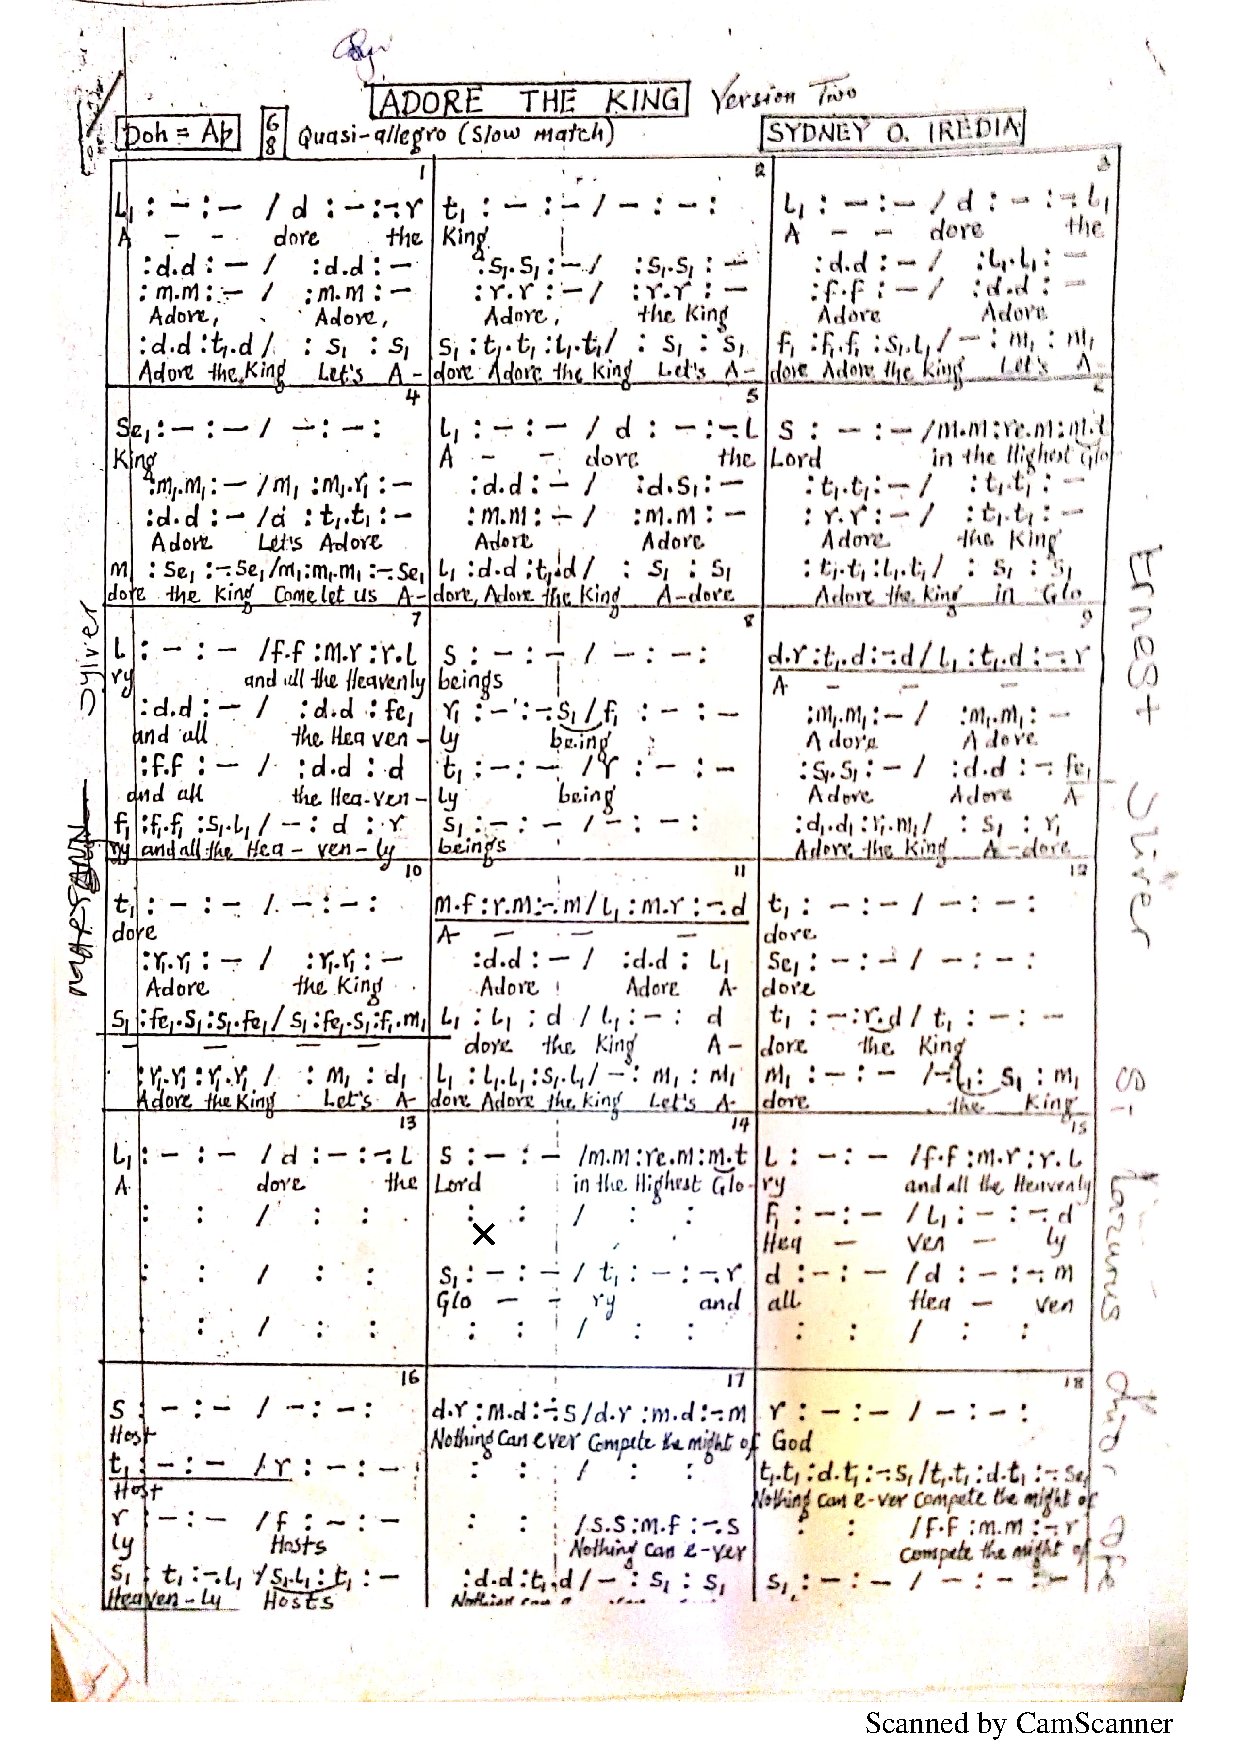 ADORE THE KING Version Two
Doh = Ab 6/8 Quasi-allegro (Slow match) SYDNEY O. IREDIA
1
L₁ : – : – / d : – : –.r
A – – dore the
: d.d : – / : d.d : –
: m.m : – / : m.m : –
Adore, Adore,
: d.d : t₁.d / : s₁ : s₁
Adore the King Let's A-
2
t₁ : – : – / – : – :
King
: s₁.s₁ : – / : s₁.s₁ : –
: r.r : – / : r.r : –
Adore, the King
s₁ : t₁.t₁ : L₁.t₁ / : s₁ : s₁
dore Adore the King Let's A-
3
L₁ : – : – / d : – : –.L₁
A – – dore the
: d.d : – / : L₁.L₁ : –
: f.f : – / : d.d : –
Adore Adore
f₁ : f₁.f₁ : s₁.L₁ / – : m₁ : m₁
dore Adore the King Let's A-
4
Se₁ : – : – / – : – :
King
: m₁.m₁ : – / m₁ : m₁.r₁ : –
: d.d : – / d : t₁.t₁ : –
Adore Let's Adore
m₁ : Se₁ : –.Se₁ / m₁ : m₁.m₁ : –.Se₁
dore the King Come let us A-
5
L₁ : – : – / d : – : –.L
A – – dore the
: d.d : – / : d.s₁ : –
: m.m : – / : m.m : –
Adore Adore
L₁ : d.d : t₁.d / : s₁ : s₁
dore, Adore the King A-dore
S : – : – / m.m : re.m : m.t
Lord in the Highest Glo
: t₁.t₁ : – / : t₁.t₁ : –
: r.r : – / : t₁.t₁ : –
Adore the King
: t₁.t₁ : L₁.t₁ / : s₁ : s₁
Adore the King in Glo
7
L : – : – / f.f : m.r : r.L
ry and all the Heavenly
: d.d : – / : d.d : fe₁
and all the Hea ven -
: f.f : – / : d.d : d
and all the Hea-ven -
f₁ : f₁.f₁ : s₁.L₁ / – : d : r
ry and all the Hea - ven - ly
8
S : – : – / – : – :
beings
r₁ : – : –.s₁ / f₁ : – : –
ly being
t₁ : – : – / r : – : –
ly being
s₁ : – : – / – : – :
beings
9
d.r : t₁.d : –.d / L₁ : t₁.d : –.r
A – – –
: m₁.m₁ : – / : m₁.m₁ : –
Adore Adore
: s₁.s₁ : – / : d.d : –.fe₁
Adore Adore A-
: d₁.d₁ : r₁.m₁ / : s₁ : r₁
Adore the King A-dore
10
t₁ : – : – / – : – :
dore
: r₁.r₁ : – / : r₁.r₁ : –
Adore the King
s₁ : fe₁.s₁ : s₁.fe₁ / s₁ : fe₁.s₁ : f₁.m₁
– – – –
: r₁.r₁ : r₁.r₁ / : m₁ : d₁
Adore the King Let's A-
11
m.f : r.m : –.m / L₁ : m.r : –.d
A- – – –
: d.d : – / : d.d : L₁
Adore Adore A-
L₁ : L₁ : d / L₁ : – : d
dore the King A-
L₁ : L₁.L₁ : s₁.L₁ / – : m₁ : m₁
dore Adore the King Let's A-
12
t₁ : – : – / – : – :
dore
Se₁ : – : – / – : – :
dore
t₁ : – : r.d / t₁ : – : –
dore the King
m₁ : – : – / –.L₁ : s₁ : m₁
dore the King
13
L₁ : – : – / d : – : –.L
A dore the
: : / : :
: : / : :
: / : :
14
S : – : – / m.m : re.m : m.t
Lord in the Highest Glo-
: : / : :
×
s₁ : – : – / t₁ : – : –.r
Glo – – ry and
: : / : :
15
L : – : – / f.f : m.r : r.L
ry and all the Heavenly
f₁ : – : – / L₁ : – : –.d
Hea – ven – ly
d : – : – / d : – : –.m
all Hea – ven
: : / : :
16
S : – : – / – : – :
Host
t₁ : – : – / r : – : –
Host
r : – : – / f : – : –
ly Hosts
s₁ : t₁ : –.L₁ / s₁.L₁ : t₁ : –
Heaven-ly Hosts
17
d.r : m.d : –.s / d.r : m.d : –.m
Nothing Can ever Compete the might of
: : / : :
: : / s.s : m.f : –.s
Nothing can e-ver
: d.d : t₁.d / – : s₁ : s₁
18
r : – : – / – : – :
God
t₁.t₁ : d.t₁ : –.s₁ / t₁.t₁ : d.t₁ : –.Se₁
Nothing can e-ver compete the might of
: : / f.f : m.m : –.r
compete the might of
s₁ : – : – / – : – : –
Ernest Sliver
Scanned by CamScanner